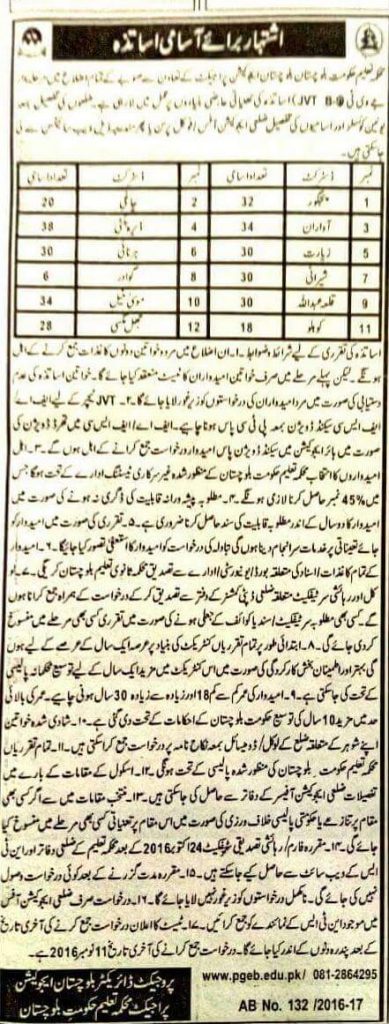 اشتہار برائے آسامی اساتذہ
محکمہ تعلیم حکومت بلوچستان بلوچستان ایجوکیشن پراجیکٹ کے تعاون سے صوبے کے تمام اضلاع میں
جے وی ٹی (JVT B-9) اساتذہ کی تعیناتی عارضی بنیادوں پر عمل میں لا رہی ہے۔ ضلعوں کی تفصیل بمعہ
یونین کونسلز اور اسامیوں کی تفصیل ضلعی ایجوکیشن آفس، لوکل پرنٹ یا پھر مندرجہ ذیل ویب سائٹس سے لی
جا سکتی ہیں۔
نمبر ڈسٹرکٹ تعداد اسامی نمبر ڈسٹرکٹ تعداد اسامی
1 پنجگور 32 2 چاغی 20
3 آواران 34 4 ڈیرہ بگٹی 38
5 زیارت 30 6 ہرنائی 30
7 شیرانی 30 8 گوادر 6
9 قلعہ عبداللہ 30 10 موسیٰ خیل 34
11 کوہلو 18 12 جھل مگسی 28
اساتذہ کی تقرری کے لیے شرائط و ضوابط۔ ۱۔ ان اضلاع میں مرد و خواتین دونوں کاغذات جمع کرنے کے اہل
ہونگے۔ لیکن پہلے مرحلے میں صرف خواتین امیدواران کا ٹیسٹ منعقد کیا جائے گا۔ خواتین اساتذہ کی عدم
دستیابی کی صورت میں مرد امیدواران کی درخواستوں کو زیر غور لایا جائے گا۔ ۲۔ JVT ٹیچر کے لیے ایف اے
ایف ایس سی سیکنڈ ڈویژن بمعہ پی ٹی سی پاس ہونا چاہیے۔ ایف اے / ایف ایس سی میں تھرڈ ڈویژن کی
صورت میں ہائر ایجوکیشن میں سیکنڈ ڈویژن پاس امیدوار درخواست جمع کرانے کے اہل ہوں گے۔ ۳۔
امیدواروں کا انتخاب محکمہ تعلیم حکومت بلوچستان کے منظور شدہ غیر سرکاری ٹیسٹنگ ادارے کے تحت ہوگا جس
میں 45% نمبر حاصل کرنا لازمی ہونگے۔ ۴۔ مطلوبہ پیشہ ورانہ قابلیت کی ڈگری نہ ہونے کی صورت میں
امیدوار کا دو سال کے اندر مطلوبہ قابلیت کی سند حاصل کرنا ضروری ہے۔ ۵۔ تقرری کی صورت میں امیدوار کو
جائے تعیناتی پر خدمات سرانجام دینا ہوں گی تبادلہ کی درخواست کو امیدوار کا استعفیٰ تصور کیا جائیگا۔ ۶۔ امیدوار
کے تمام کاغذات / اسناد کی متعلقہ بورڈ / یونیورسٹی / ادارے سے تصدیق محکمہ ثانوی تعلیم بلوچستان کریگی۔ ۷۔
لوکل اور رہائشی سرٹیفکیٹ متعلقہ ضلعی ڈپٹی کمشنر کے دفتر سے تصدیق کر کے درخواست کے ہمراہ جمع کرانا ہوں
گے۔ کسی بھی مطلوبہ سرٹیفکیٹ / سند یا کوائف کے جعلی ہونے کی صورت میں تقرری کسی بھی مرحلے میں منسوخ
کر دی جائے گی۔ ۸۔ ابتدائی طور پر تمام تقرریاں کنٹریکٹ کی بنیاد پر عرصہ ایک سال کے عرصے کے لیے ہوں
گی بہتر اور اطمینان بخش کارکردگی کی صورت میں اس کنٹریکٹ میں مزید ایک سال کے لیے توسیع محکمانہ پالیسی
کے تحت کی جا سکتی ہے۔ ۹۔ امیدوار کی عمر کم سے کم 18 اور زیادہ سے زیادہ 30 سال ہونی چاہیے۔ عمر کی بالائی
حد میں مزید 10 سال کی توسیع حکومت بلوچستان کے احکامات کے تحت دی گئی ہے۔ ۱۰۔ شادی شدہ خواتین
اپنے شوہر کے متعلقہ ضلع کے لوکل / ڈومیسائل بمعہ نکاح نامہ پر درخواست جمع کرا سکتی ہیں۔ ۱۱۔ تمام تقرریاں
محکمہ تعلیم حکومت بلوچستان کی منظور شدہ پالیسی کے تحت ہونگی۔ ۱۲۔ اسکول کے مقامات کے بارے میں
تفصیلات ضلعی ایجوکیشن آفیسر کے دفاتر سے حاصل کی جا سکتی ہیں۔ ۱۳۔ منتخب مقامات میں سے اگر کسی بھی
مقام پر تنازعے یا حکومتی پالیسی خلاف ورزی کی صورت میں اس مقام پر تعیناتی کسی بھی مرحلے میں منسوخ کیا
جائے گی۔ ۱۴۔ مقررہ فارم / رہائشی تصدیقی سرٹیفکیٹ 24 اکتوبر 2016 کے بعد محکمہ تعلیم کے ضلعی دفاتر اور این ٹی
ایس کے ویب سائٹ سے حاصل کیے جا سکتے ہیں۔ ۱۵۔ مقررہ مدت گزرنے کے بعد کوئی درخواست وصول
نہیں کی جائے گی۔ نامکمل درخواستوں کو زیر غور نہیں لایا جائے گا۔ ۱۶۔ درخواست صرف ضلعی ایجوکیشن آفس
میں موجود این ٹی ایس کے نمائندے کو جمع کرائیں۔ ۱۷۔ ٹیسٹ کا اعلان درخواست جمع کرنے کی آخری تاریخ
کے بعد پندرہ دنوں کے اندر کیا جائے گا۔ درخواست جمع کرنے کی آخری تاریخ 11 نومبر 2016 ہے۔
پروجیکٹ ڈائریکٹر بلوچستان ایجوکیشن
پراجیکٹ محکمہ تعلیم حکومت بلوچستان
www.pgeb.edu.pk/ 081-2864295
AB No. 132 /2016-17